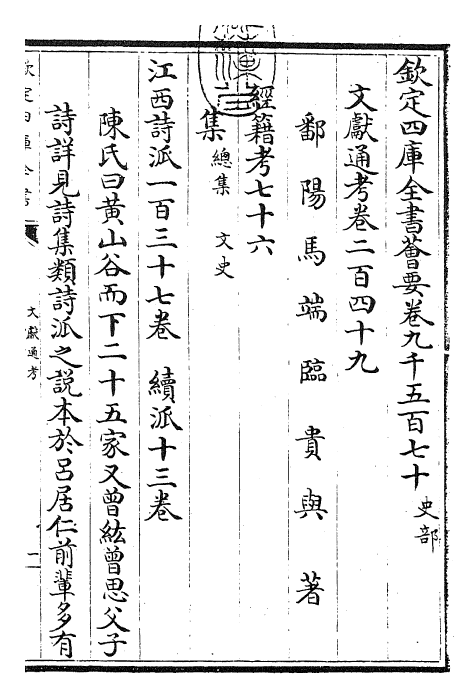 欽定四庫全書薈要卷九千五百七十 史部
文獻通考卷二百四十九
鄱陽馬端臨貴與著
經籍考七十六
集 總集 文史
江西詩派一百三十七卷 續派十三卷
陳氏曰黃山谷而下二十五家又曾紘曾思父子
詩詳見詩集類詩派之說本於呂居仁前輩多有
欽定四庫全書
文獻通考
一